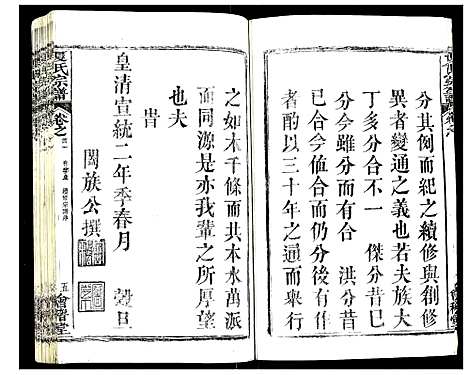 分其例而紀之續修與創修
異者變通之義也若夫族大
丁多分合不一　傑分昔
分今雖分而有合　洪分昔
已合今值合而仍分後有作
者以三十年之通而舉行
之如木千條而共本水萬派
而同源是亦我輩之所厚望
也夫
旹
皇清宣統二年季春月　穀旦
闔族公撰
夏氏宗譜
卷之
五
會稽堂